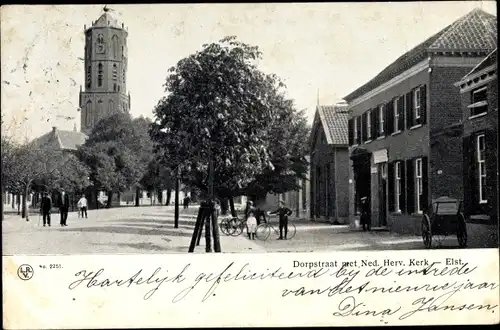 No. 2251.
Dorpstraat met Ned. Herv. Kerk — Elst.
Hartelijk gefeliciteerd by de intrede
van het nieuwe jaar
Dina Jansen